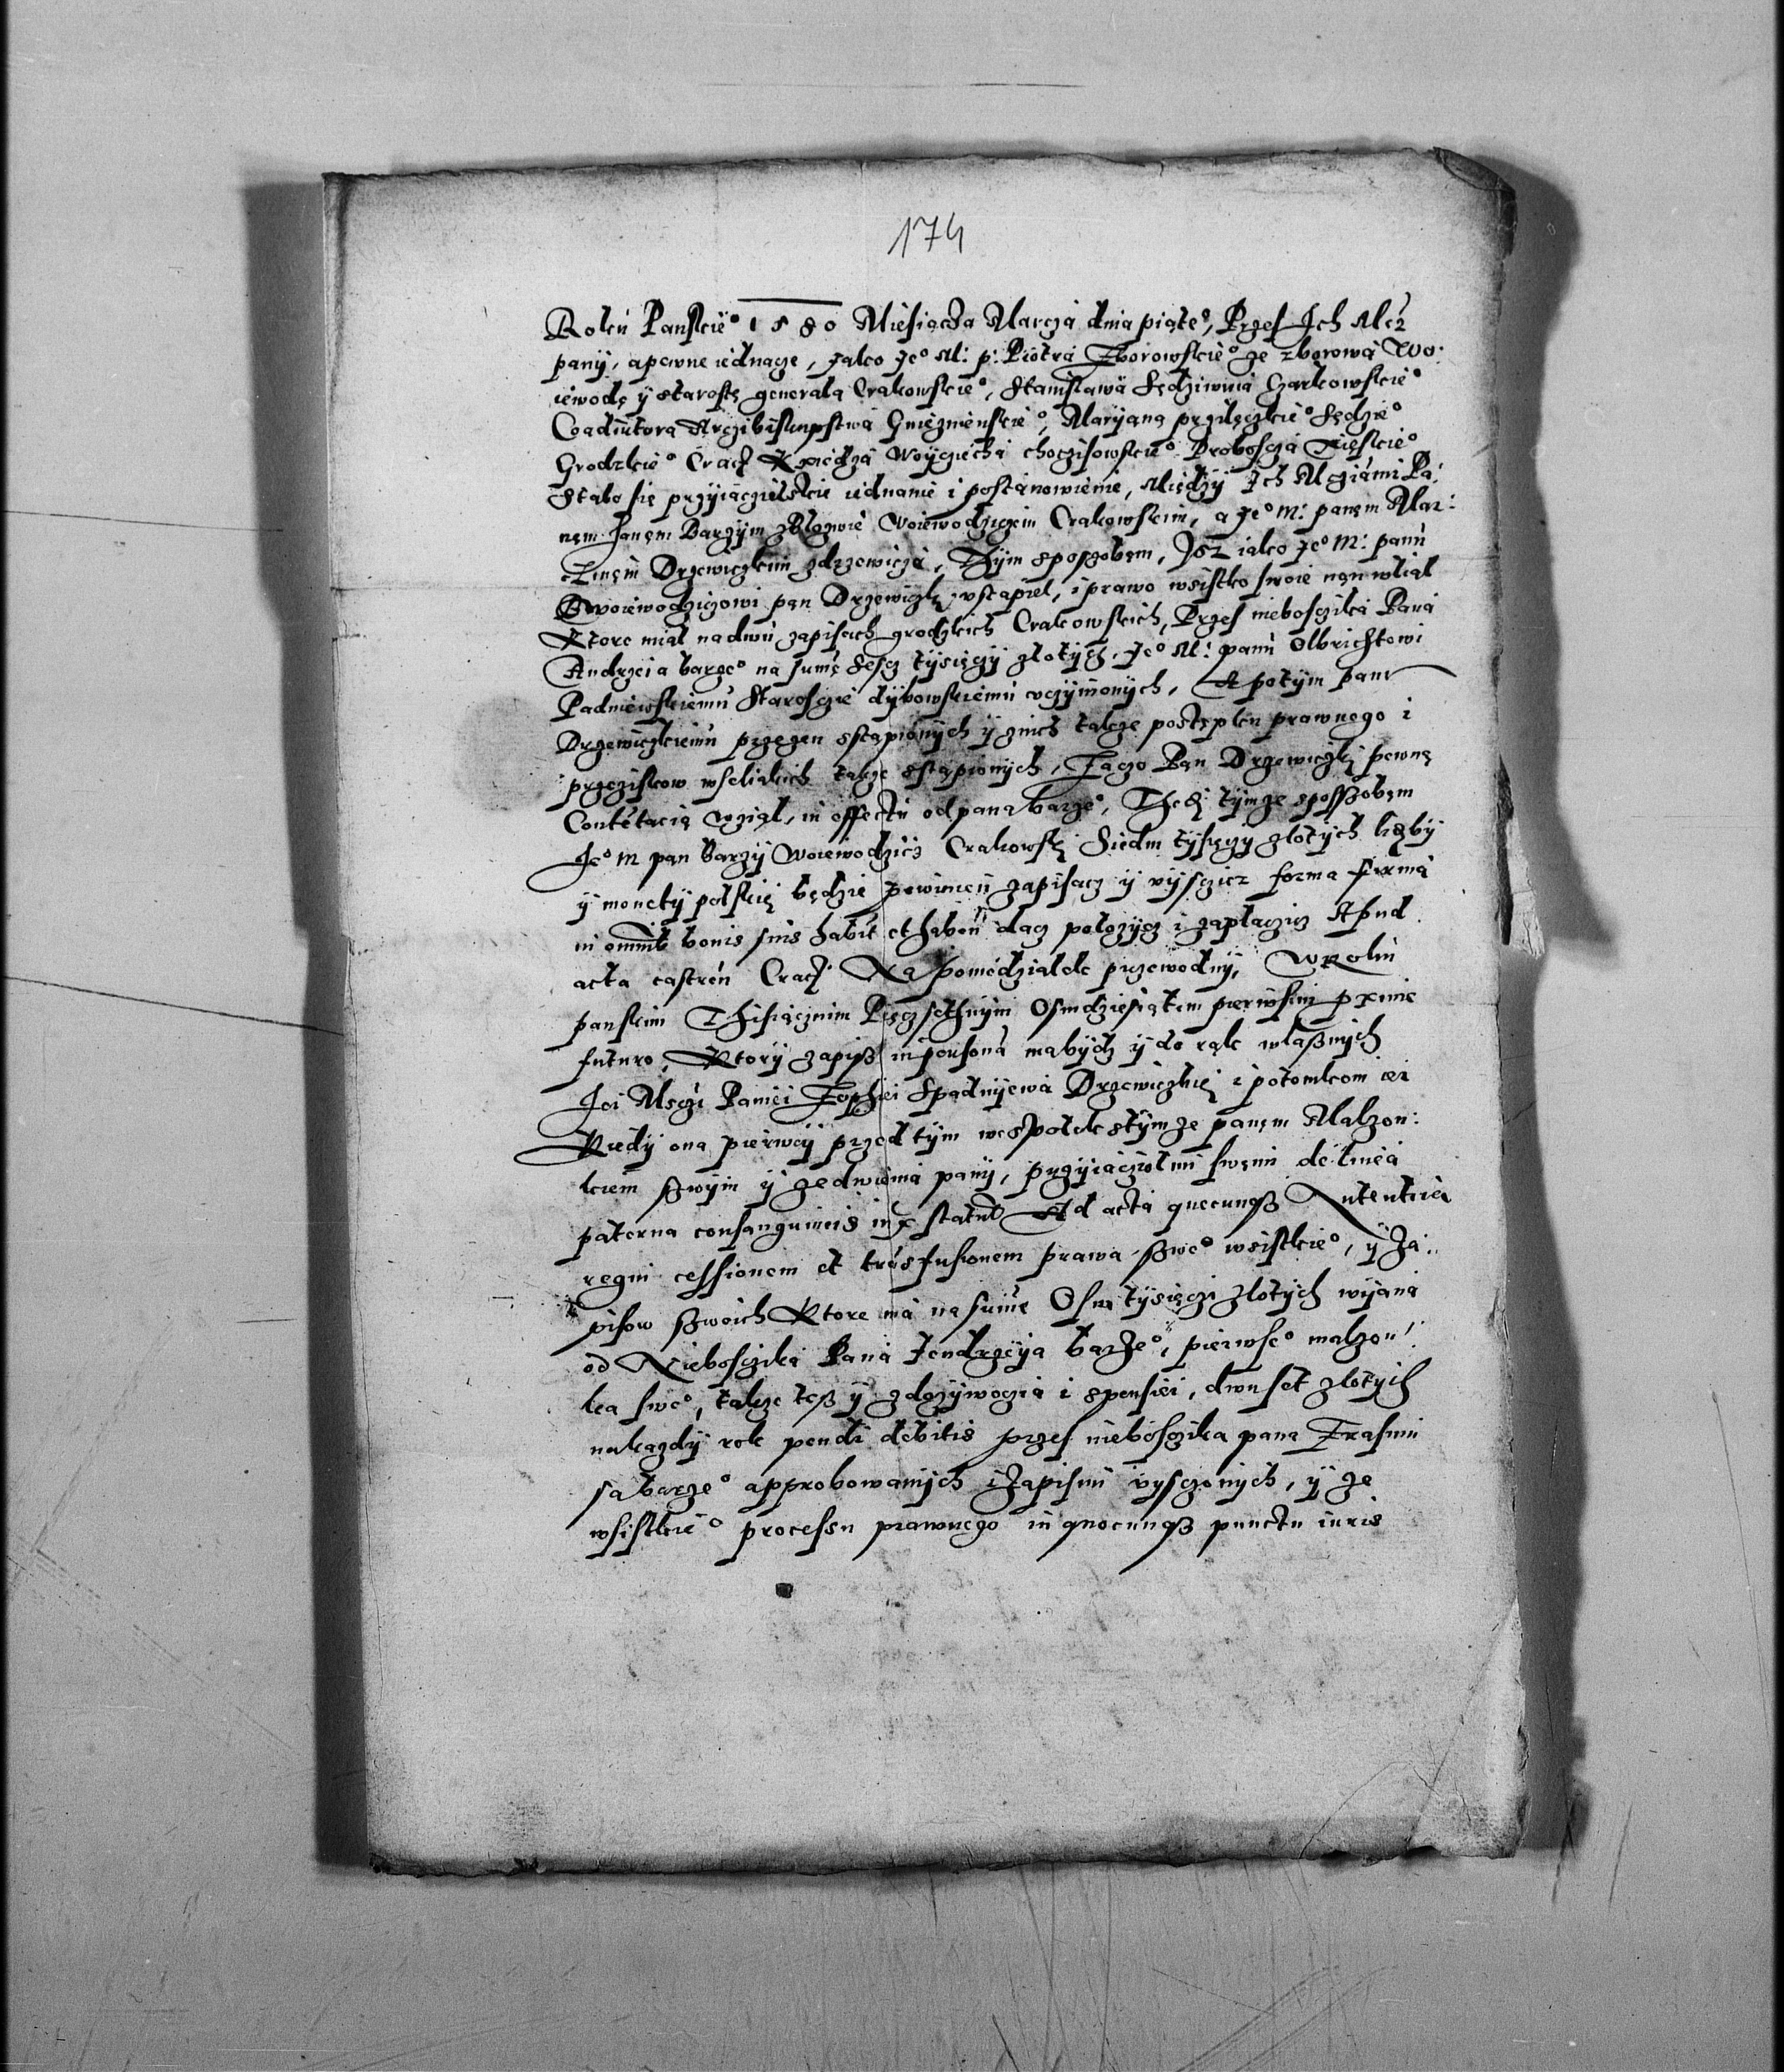 174
Roku Panskie° 1580 Miesiącza Marcza dnia piąte°, Przes Ich Mcz
pany, apewne iednacze, Jako Je° M: p: Piotra Zborowskie° ze zborowa Wo:
iewodę y starostę generała Crakowskie°, Stanisława Sędziwuia Czarkowskie°
Coadiutora Arczibiskupstwa Gnieznienskie°, Maryana przilęczkie° Sędzie°
Grodzkie° Crac Kxiędza Woyciecha choczisowskie° Proboscza
Stało się przyiaczielskie iednanie i postanowienie, Między Ich Mcziami Pa:
nęm Janęm Barzym zBłozwie Woiewodziczem Crakowskim, a Je° M: panęm Mar:
czinęm Drzewiczkim zdrzewicza, Thym sposzobęm, Isz iako Je° M: panu
Woiewodziczowi pan Drzewiczky vstąpiel, i prawo wsistko swoie nań wliał
Ktore miał nadwu zapisach grodzkich Crakowskich, Przes nieboscziká Pana
Andrzeia barze° na sumę sescz tysięczy złotych, Je° M: panu Olbrichtowi
Padniewskiemu Starosczie dybowskiemu vczynionych, A potym panu
Drzewiczkiemu przezen sstąpionych y znich takze postępku prawnego i
przeziskow wselakich takze sstąpionych, Zaczo Pan Drzewiczky pewną
Contentacią wziął, in effectu odpana barze°, Thedy tymze sposszobęm
Je° M pan Barzy Woiewodzicz Crakowsky Siedm tysięczy złotych liczby
y monety polskiey będzie powinien zapisacz y vysczicz forma firma
in omnib bonis suis habit et haben dacz położycz i zapłaczicz Apud
acta castren Crac Na poniedziałek przewodny, WRoku
panskim Thisiącznim Pięczsethnym Osmdziesiątem pierwsim
futuro, Ktory zapisz inpersona mabydz y do rąk własznych
Jei Msczi Paniei Zophiei Spadnyewa Drzewiczkiey i potomkom iei
Kiedy ona pierwey przed tym wespołek stymze panęm Malzon:
kiem szwym y zedwiema pany, przyiacziołmi swęmi de linea
paterna consanguineis statut Ad acta quecunqß Autentica
regni cessionem et transfusionem prawa szwe° wsistkie°, y Za:
pisow szwoich Ktore ma na sumę Osm tysięczi złotych wiana
od Nieboscziká Pana Jendrzeya barze°, pierwse° malzon:
ka swe°, takze tesz y zdozywoczia i spensiei, dwuset złotych
nakazdy rok pendi debitis przes nieboscziká pana Erasmu
sabarze° approbowanych izapismi vysczonych, y ze
wsistkie° processu prawnego in quocunqß puncto iuris